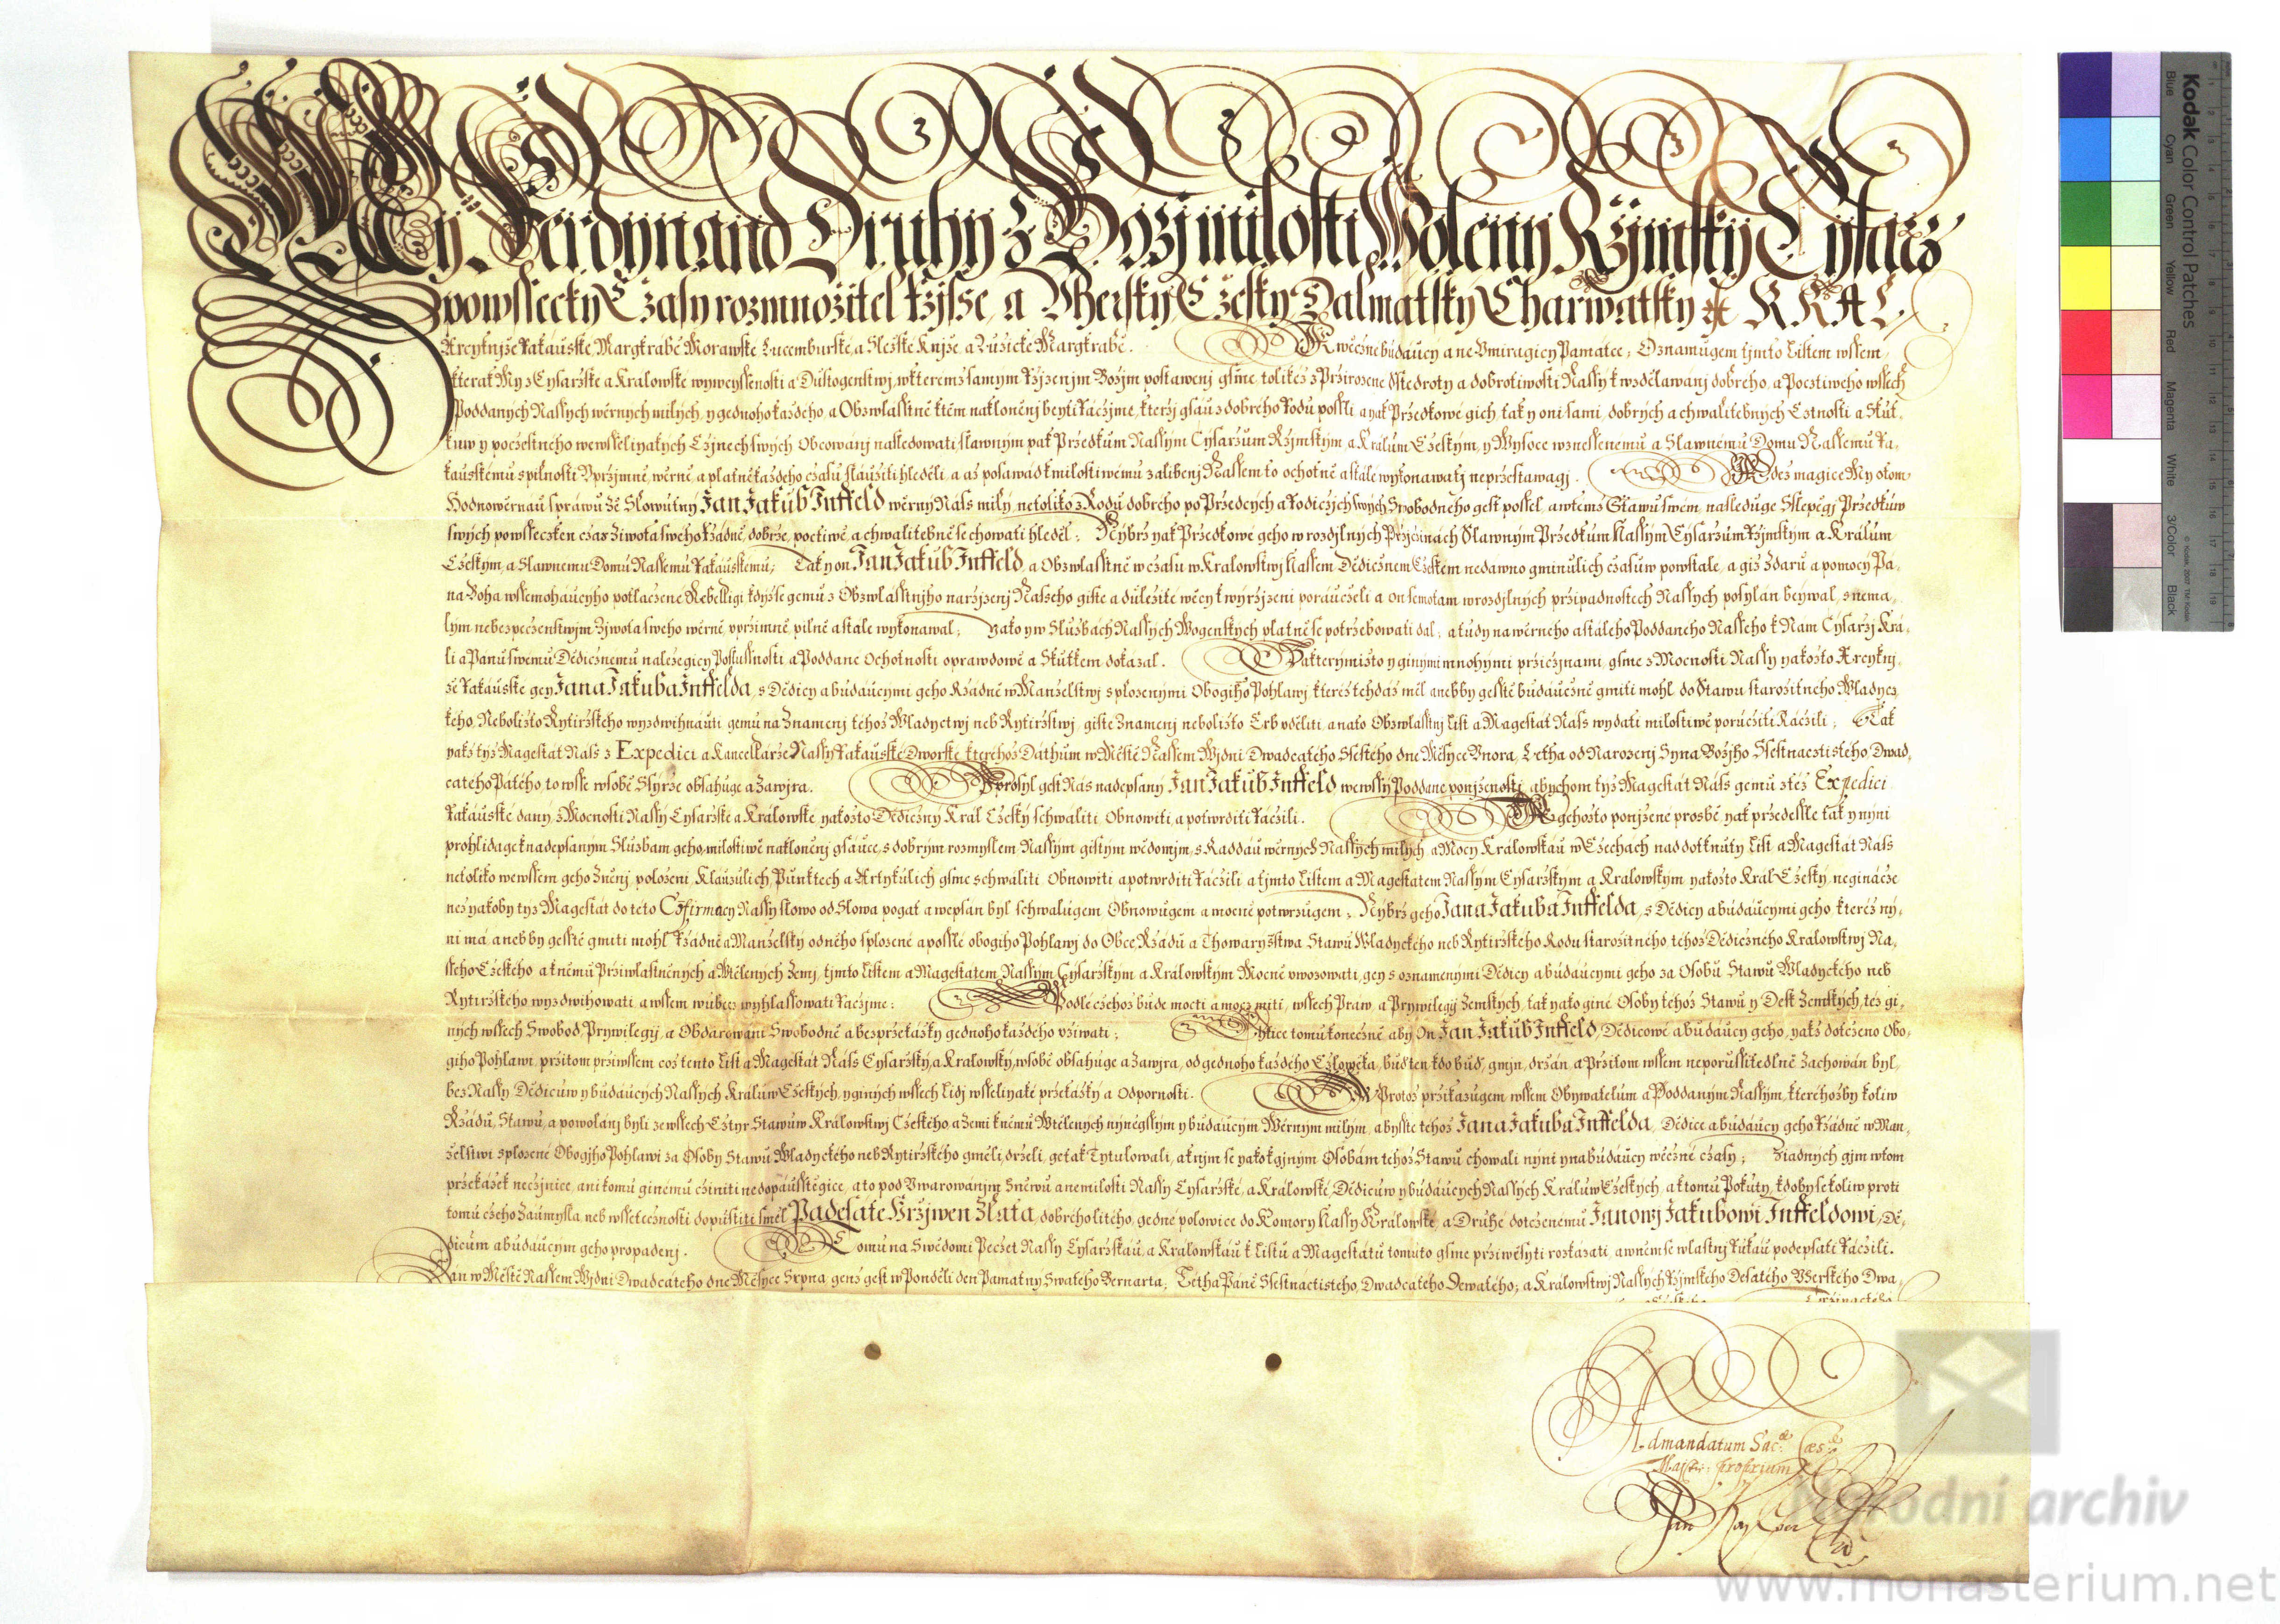 My Ferdynand Druhy z Bozj milosti Woleny Rzjmsky Cysarz
po wssecky Czasy rozmnozitel Rzjsse, a Vhersky Czesky Dalmatsky Charwatsky &c KRAL
Arcyknjze Rakauske, Margkrabě Morawske Lucemburske, a Slezske Knjze, a Luzicke Margkrabě. K wěczne budaucy a ne Vmiragicy Pamatce, Oznamugem tjmto Listem wssem,
kterak My z Cysarzske a Kralowske wywyssenosti a Dustogenstwj, w kteremz samym Rzjzenjm Bozjm postaweni gsme, tolikez z Przirozene Sstiedroty a dobrotiwosti Nassy k wzdělawanj dobreho, a Poctiweho wssech
Poddanych Nassych wěrnych milych, y gednoho kazdeho, a Obzwlasstně k těm nakloněni beyti Raczjme, kterzj gsau z dobreho Rodu possli a yak Przedkowe gich, tak y oni sami, dobrych a chwalitebnych Cztnosti a Skut-
kuw y poczestneho we wsseliyakych Czjnech swych Obcowanj nasledowati, slawnym pak Przedkum Nassym Cysarzum Rzjmskym, a Kralum Czeskym, y Wysoce wznessenemu a Slawnemu Domu Nassemu Ra-
kauskemu s pilnosti Vprzjmně, wěrně, a platně kazdeho czasu slauziti hleděli, a az posawad k milostiwemu zalibenj Nassem to ochotně a stale wykonawati neprzestawagj. Kdez magice My o tom
Hodnowěrnau sprawu ze Slowutny Jan Jakub Inffeld wěrny Nass mily, netoliko z Rodu dobreho po Przedcych a Rodiczjch swych Swobodneho gest possel, a w temz Stawu swem, nasleduge Sslepěgj Przedkuw
swych po wsseczken czas ziwota sweho Rzadně, dobrze, poctiwě, a chwalitebně se chowati hleděl; Nybrz yak Przedkowe geho w rozdjlnych Przjczinach Slawnym Przedkum Nassym Cysarzum Rzjmskym a Kralum
Czeskym, a Slawnemu Domu Nassemu Rakauskemu; Tak y on Jan Jakub Inffeld, a Obzwlasstně w czasu w Kralowstwj Nassem Dědicznem Czeskem nedawno gminulich czasuw powstale, a giz z daru a pomocy Pa-
na Boha wssemohaucyho potlaczene Rebelligi kdyz se gemu z Obzwlasstnjho narzjzenj Nasseho giste a dulezite wěcy k wyrzjzeni porauczeli a on sem o tam w rozdjlnych przipadnostech Nassych posylan beywal, s nema-
lym nebezpeczenstwjm Zjwota sweho wěrně, vprzimně, pilně a stale wykonawal; yako y w Sluzbach Nassych Wogenskych platně se potrzebowati dal; a tudy na wěrneho a staleho Poddaneho Nasseho k Nam Cysarzj Kra-
li a Panu swemu Dědicznemu nalezegicy Poslussnosti, a Poddane Ochotnosti oprawdowě a Skutkem dokazal. Z kterymizto y ginymi mnohymi przicznami, gsme z Mocnosti Nassy yakozto Arcyknj-
ze Rakauske gey Jana Jakuba Inffelda, s Dědicy a budaucymi geho Rzadně w Manzelstwj splozenymi Obogiho Pohlawj kterez tehdaz měl aneb by gesstě budaucně gmiti mohl do Stawu starozitneho Wladycz-
keho, Nebolizto Rytirzskeho wyzdwihnauti, gemu na Znamenj tehoz Wladyctwj neb Rytirzstwj, giste Znamenj nebolizto Erb vděliti, a na to Obzwlasstnj List a Magestat Nass wydati milostiwě poruczili Raczili; Tak
yakz tyz Magestat Nass z Expedici a Kancellarze Nassy Rakauske Dworske, kterehoz Dathum w Městě Nassem Wjdni Dwadcateho Ssesteho dne Měsyce Vnora, Letha od Narozenj Syna Bozjho Ssestnacztisteho, Dwad-
cateho Pateho, to wsse w sobě Ssyrze obsahuge a Zawjra. Y prosyl gest Nas nadepsany Jan Jakub Inffeld we wssy Poddane ponjzenosti, abychom tyz Magestat Nass gemu z tez Expedici
Rakauske dany, z Mocnosti Nassy Cysarzske a Kralowske, yakozto Dědiczny Kral Czesky schwaliti, Obnowiti a potwrditi Raczili. K gehozto ponjzene prosbě, yak przedessle tak y nyni
prohlidage k nadepsanym Sluzbam geho, milostiwě nakloněni gsauce, s dobrym rozmyslem Nassym gistym wědomjm, s Raddau wěrnych Nassych milych, a Mocy Kralowskau w Czechach nad dotknuty List a Magestat Nass
netoliko we wssem geho Zněnj, polozeni, Klauzulich, Punktech a Artykulich gsme schwaliti, Obnowiti a potwrditi Raczili, a tjmto Listem a Magestatem Nassym Cysarzskym a Kralowskym yakozto Kral Czesky, neginacze
nez yakoby tyz Magestat do teto Cōfirmacy Nassy slowo od Slowa pogat a wepsan byl schwalugem Obnowugem a mocně potwrzugem; Nybrz geho Jana Jakuba Inffelda, s Dědicy a budaucymi geho, kterez ny-
ni ma, aneb by gesstě gmiti mohl Rzadně a Manzelsky od něho splozene a possle obogiho Pohlawj do Obce, Rzadu a Thowaryzstwa Stawu Wladyckeho neb Rytirzskeho Rodu starozitneho tehoz Dědiczneho Kralowstwj Na-
sseho Czeskeho a k němu Przjwlastněnych a Wtělenych Zemj, tjmto Listem a Magestatem Nassym Cysarzskym a Kralowskym Mocně vwozowati, gey s oznamenymi Dědicy a budaucymi geho za Osobu Stawu Wladyckeho neb
Rytirzskeho wyzdwihowati a wssem wubec wyhlassowati Raczjme: Podle czehoz bude mocti a moc miti, wssech Praw, a Prywilegij Zemskych, tak yako gine Osoby tehoz Stawu y Desk Zemskych, tez gi-
nych wssech Swobod, Prywilegij, a Obdarowani Swobodně a bez przekazky gednoho kazdeho vziwati; Chtice tomu konecznie, aby On Jan Jakub Inffeld, Dědicowe a budaucy geho, yakz dotczeno Obo-
giho Pohlawi, przi tom przi wssem coz tento List a Magestat Nass Cysarzsky, a Kralowsky, w sobě obsahuge a Zawjra, od gednoho kazdeho Czlowěka, bud ten kdo bud, gmjn, drzan, a Przi tom wssem neporussitedlně Zachowan byl,
bez Nassy Dědicuw y budaucych Nassych Kraluw Czeskych, y ginych wssech Lidj wsseliyake przekazky a Odpornosti. Protoz przikazugem wssem Obywatelum a Poddanym Nassym, kterehozby koliw
Rzadu, Stawu, a powolanj byli ze wssech Cztyr Stawuw Kralowstwj Czeskeho, a Zemi k němu Wtělenych nyněgssym y budaucym Wěrnym milym, abysste tehoz Jana Jakuba Inffelda, Dědice a budaucy geho Rzadně w Man-
zelstwi splozene Obogjho Pohlawi za Osoby Stawu Wladyckeho neb Rytirzskeho gměli, drzeli, ge tak Tytulowali, a k njm se yako k gjnym Osobam tehoz Stawu chowali nyni y na budaucy wěczne czasy; Ziadnych gjm w tom
przekazek neczjnice, ani komu ginemu cziniti nedopausstěgice, a to pod Vwarowanjm Hněwu a nemilosti Nassy Cysarzske, a Kralowske, Dědicuw y budaucych Nassych Kraluw Czeskych, a k tomu Pokuty, kdoby se koliw proti
tomu czeho Zaumysla, neb wssetecznosti dopustiti směl Padesate Hrzjwen Zlata, dobreho liteho, gedne polowice do Komory Nassy Kralowske, a Druhe dotczenemu Janowj Jakubowi Inffeldowi, Dě-
dicum a budaucym geho propadenj. Tomu na Swědomi Peczet Nassy Cysarzskau, a Kralowskau k Listu a Magestatu tomuto gsme przjwěsyti rozkazati, a w něm se wlastnj Rukau podepsati Raczili.
Dan w Městě Nassem Wjdni Dwadcateho dne Měsyce Srpna, genz gest w Ponděli den Pamatny Swateho Bernarta; Letha Paně Ssestnactisteho, Dwadcateho Dewateho; a Kralowstwj Nassych Rzjmskeho Desateho, Vherskeho Dwa-
Ad mandatum Sac. Caes.
Majtis. proprium
Jan
Kodak Color Control Patches
Blue Cyan Green Yellow Red Magenta White 3/Color Black
© Kodak, 2007 TM: Kodak
Národní archiv
www.monasterium.net